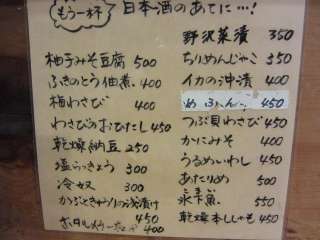 もう一杯
日本酒のあてに…!
野沢菜漬 350
ちりめんじゃこ 350
イカの沖漬 400
めふん 450
つぶ貝わさび 450
かにみそ 400
うるめいわし 450
あたりめ 500
永干魚 550
乾燥本ししゃも 450
柚子みそ豆腐 500
ふきのとう佃煮 400
梅わさび 400
わさびのおひたし 450
乾燥納豆 250
塩らっきょう 300
冷奴 300
かぶときゅうりの浅漬け 450
400